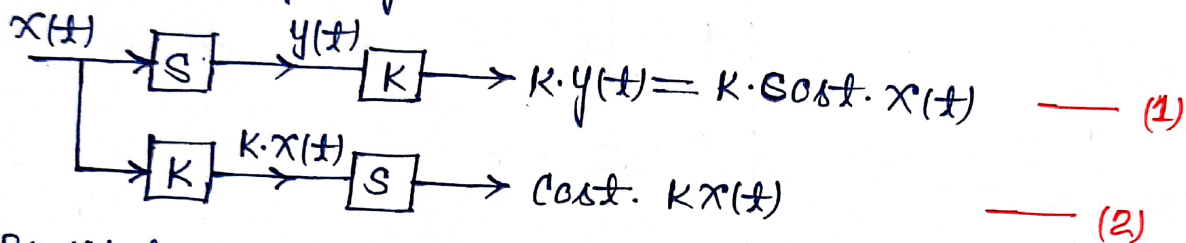 x(t) S y(t) K K·y(t) = K·Cost·x(t) (1)
K K·x(t) S Cost. Kx(t) (2)